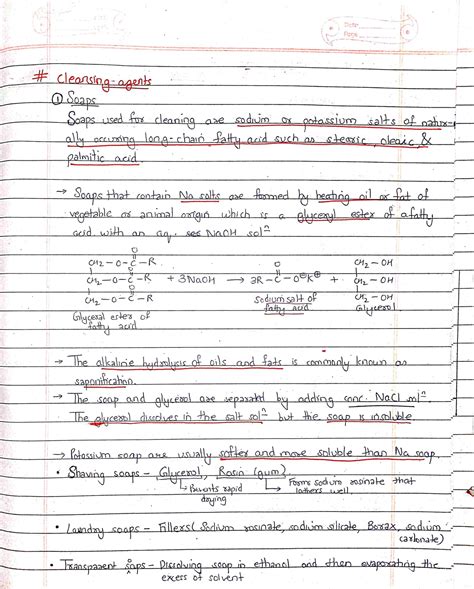 Date
Page
# Cleansing-agents
① Soaps
Soaps used for cleaning are sodium or potassium salts of natur-
ally occuring long-chain fatty acid such as stearic, oleaic, &
palmitic acid.
→ Soaps that contain Na salts are formed by heating oil or fat of
vegetable or animal origin which is a glyceryl ester of a fatty
acid with an aq. NaOH solⁿ
O
CH₂ – O – C – R
O
CH – O – C – R + 3NaOH → 3R – C – O⊖K⊕ + CH – OH
O
CH₂ – O – C – R
O
CH₂ – OH
CH₂ – OH
Glyceral ester of
fatty acid
Sodium salt of
fatty acid
Glycerol
→ The alkaline hydrolysis of oils and fats is commonly known as
saponification.
→ The soap and glycerol are separated by adding conc. NaCl solⁿ.
The glycerol disolves in the salt solⁿ but the soap is insoluble
→ Potassium soap are usually softer and more soluble than Na soap.
• Shaving soaps – Glycerol, Rosin (gum).
↳ Prevents rapid
drying
↳ Forms sodium rosinate that
lathers well.
• Laundry soaps – Fillers (Sodium rosinate, sodium silicate, Borax, sodium
carbonate)
• Transparent soaps – Dissolving soap in ethanol and then evaporating the
excess of solvent